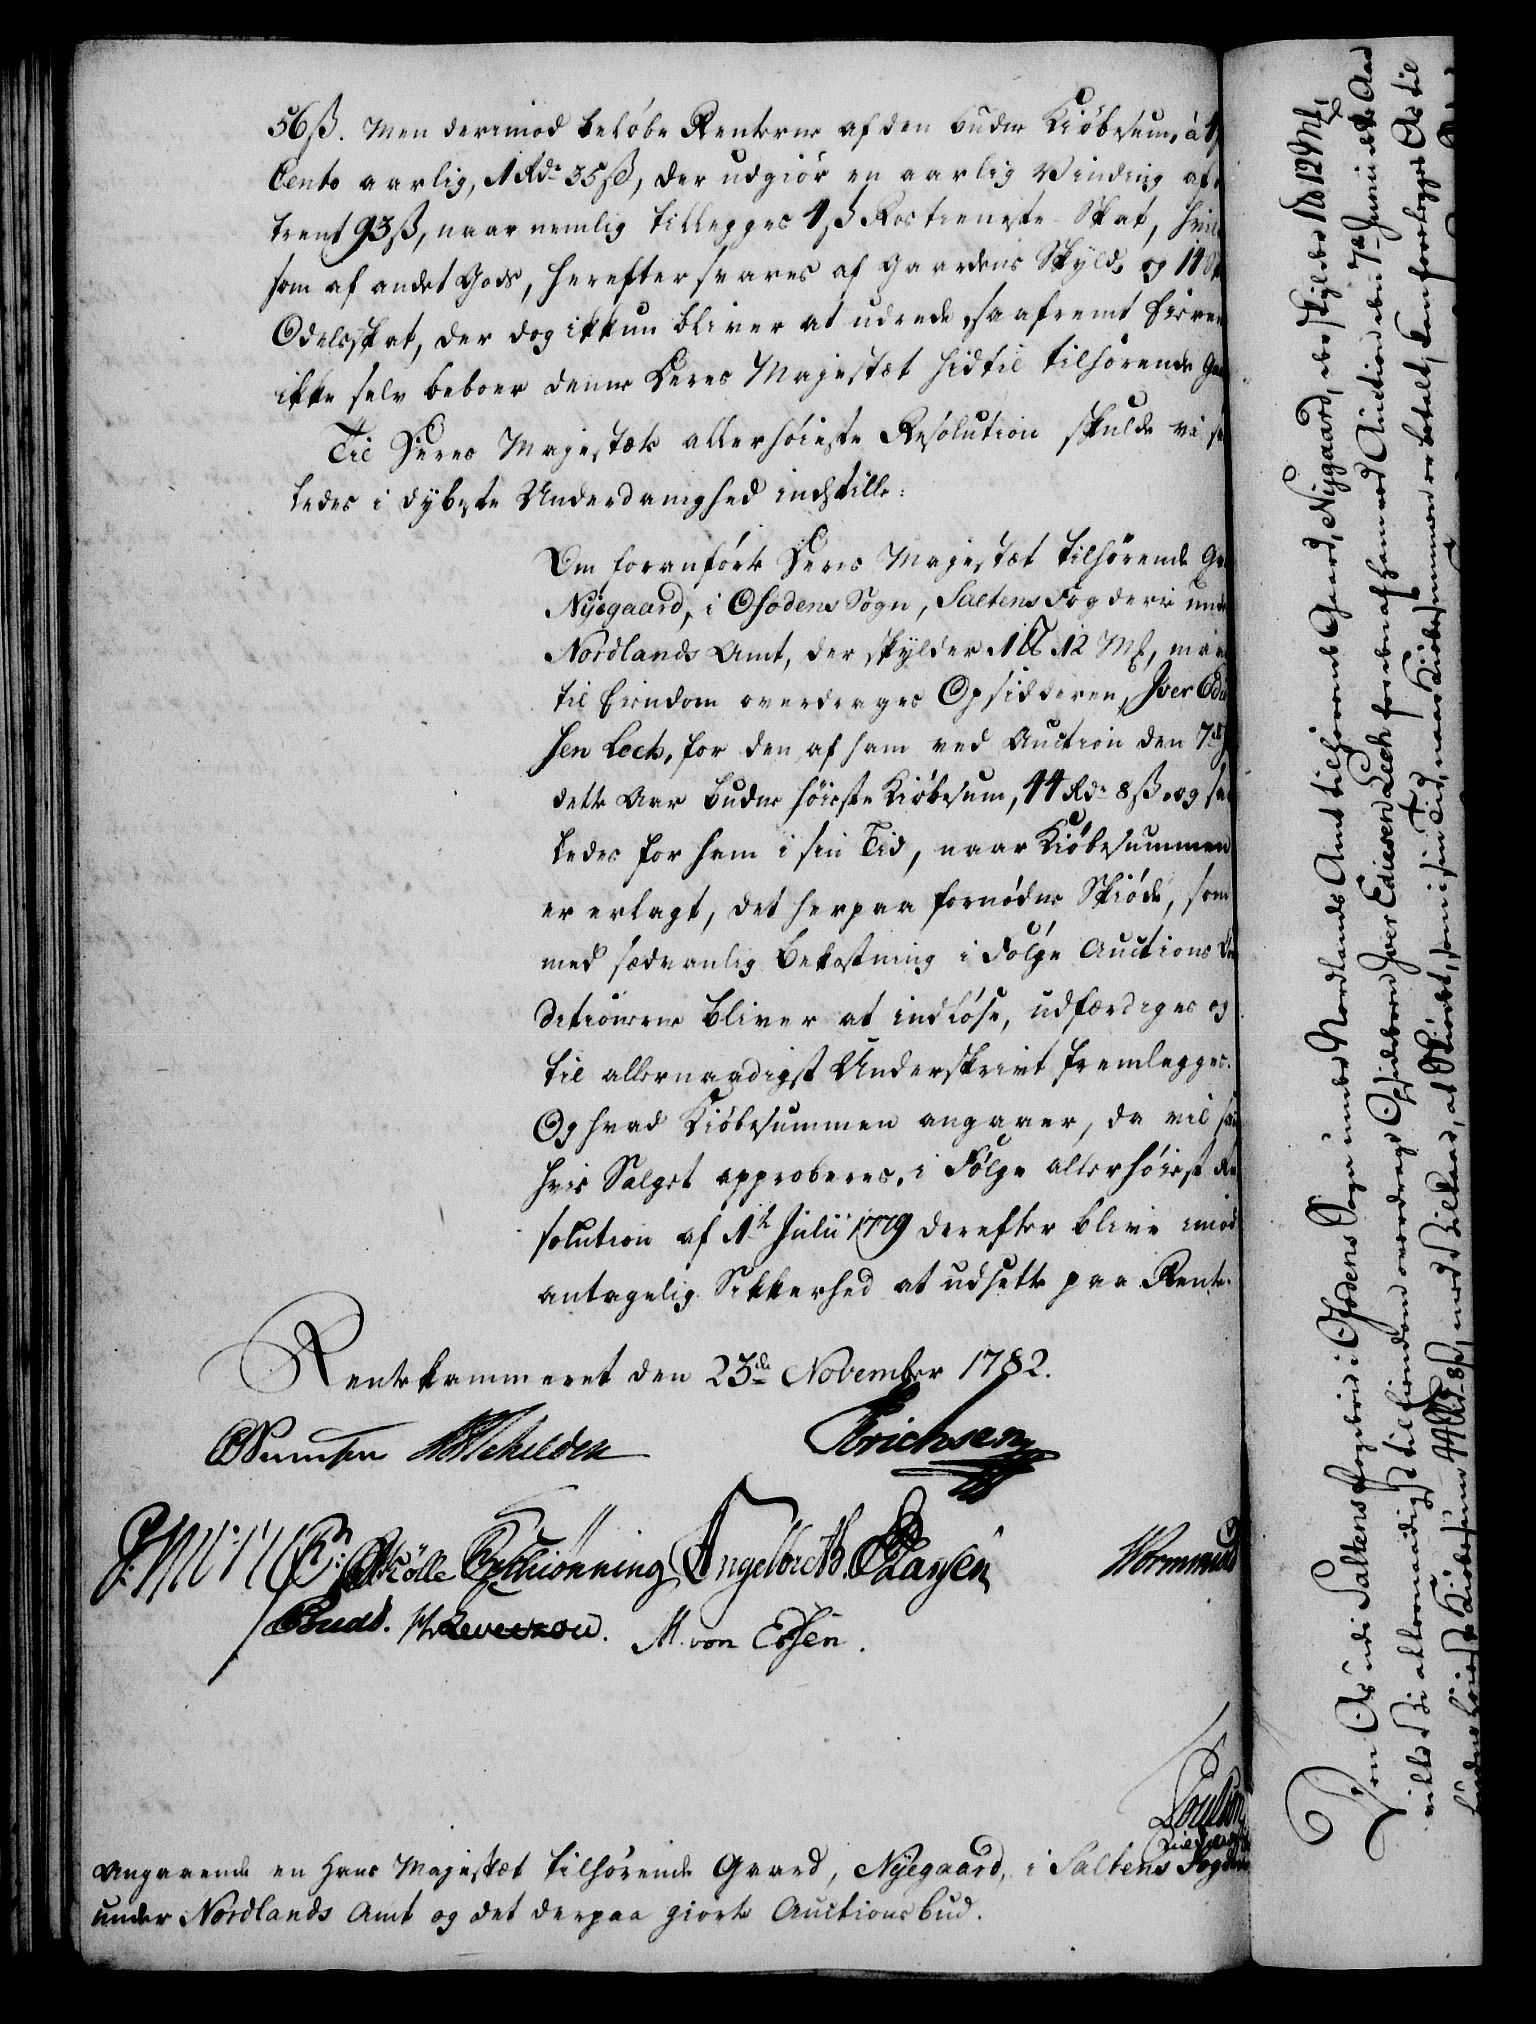 56 ß. Men derimod beløbe Renterne af den budne Kiöbesum, à 4
Cento aarlig, 1 Rdr 35 ß, der udgiør en aarlig Vinding af
trent 93 ß, naar nemlig tillegges 4 ß Rostieneste-Skat, hvil
som af andet Gods, herefter svares af Gaardens Skyld, og 14 ß
Odelsskat, der dog ikkun bliver at udrede, saafremt Eieren
ikke selv beboer denne Deres Majestæt hidtil tilhørende Ga
Til Deres Majestæts allerhøieste Resolution skulde vi sa
ledes i dybeste Underdanighed indstille:
Om foranførte Deres Majestæt tilhørende Ga
Nyegaard, i Ofodens Sogn, Saltens Fogderie unde
Nordlands Amt, der skylder 1 12 Mk, maae
til Eiendom overdrages Opsidderen, Iver Edi
sen Loch, for den af ham ved Auction den 7de
dette Aar budne høieste Kiöbesum, 44 Rdr 8 ß, og saa
ledes for ham i sin Tid, naar Kiöbesummen
er erlagt, det herpaa fornødne Skiøde, som
med sædvanlig Bekostning i Følge Auctions
ditionerne bliver at indløse, udfærdiges og
til allernaadigst Underskrivt fremlegges.
Og hvad Kiöbesummen angaaer, da vil saa
hvis Salget approberes, i Følge allerhøiest Re
solution af 1te Julii 1779 derefter blive imod
antagelig Sikkerhed at udsette paa Rente.
Rentekammeret den 23de November 1782.
Schilden Erichsen
Cölle Schiönning Angelbreth Larsen Wormskiold
Budtz. Leverzou. M. von Essen.
Poulson
Angaaende en Hans Majestæt tilhørende Gaard, Nyegaard, i Saltens Fogderie
under Nordlands Amt og det derpaa giorte Auctionsbud.
Den udi Saltens Fogderie i Ofodens Sogn under Nordlands Amt tilhørende Gaard, Nygaard, der skylder 12 Mk,
ville Vi allernaadigst til Eiendom overdrage Opsidderen Iver Edisen Loch for den af ham ved Auction den 7de Junii dette Aar
budne høieste Kiöbesum 44 Rdr 8 ß, med Vilkaar, at Skiødet, som i sin Tid, naar Kiöbesummen er betalt, kan forelegges Os til